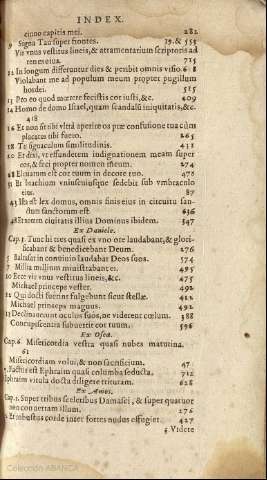 INDEX.
cinno capitis mei. 282
9 Signa Tau super frontes. 19. & 555
Vir vnus vestitus lineis, & atramentarium scriptoris ad
renes eius. 715
12 In longum differuntur dies & peribit omnis visio. 618
Violabant me ad populum meum propter pugillum
hordei. 515
13 Pro eo quod mœrere fecistis cor iusti, &c. 609
14 Homo de domo Israel, quam scandalũ iniquitatis, &c.
418
16 Et non sit tibi vltrà aperire os præ confusione tua cùm
placatus tibi fuero. 265
28 Te signaculum similitudinis. 431
20 Et dixi, vt effunderem indignationem meam super
eos, & feci propter nomen meum. 274
28 Eleuatum est cor tuum in decore tuo. 478
31 Et brachium vniuscuiusque sedebit sub vmbraculo
eius. 87
43 Ista est lex domus, omnis finis eius in circuitu san-
ctum sanctorum est. 636
48 Et nomen ciuitatis illius Dominus ibidem. 547
Ex Daniele.
Cap. 3. Tunc hi tres quasi ex vno ore laudabant, & glori-
ficabant & benedicebant Deum. 276
5 Baltasar in conuiuio laudabat Deos suos. 574
7 Millia millium ministrabant ei. 495
10 Ecce vir vnus vestitus lineis, &c. 475
Michael princeps vester. 492
12 Qui docti fuerint fulgebunt sicut stellæ. 412
Michael princeps magnus. 492
13 Declinauerunt oculus suos, ne viderent cœlum. 388
Concupiscentia subuertit cor tuum. 596
Ex Osea.
Cap. 6 Misericordia vestra quasi nubes matutina.
61
Misericordiam volui, & non sacrificium. 47
7. Factus est Ephraim quasi columba seducta. 712
Ephraim vitula docta diligere trituram. 628
Ex Amos.
Cap. 1. Super tribus sceleribus Damasci, & super quatuor
non conuertam illum. 276
2 Et robustus corde inter fortes nudus effugiet. 427
5 Videte
Colección ABANCA